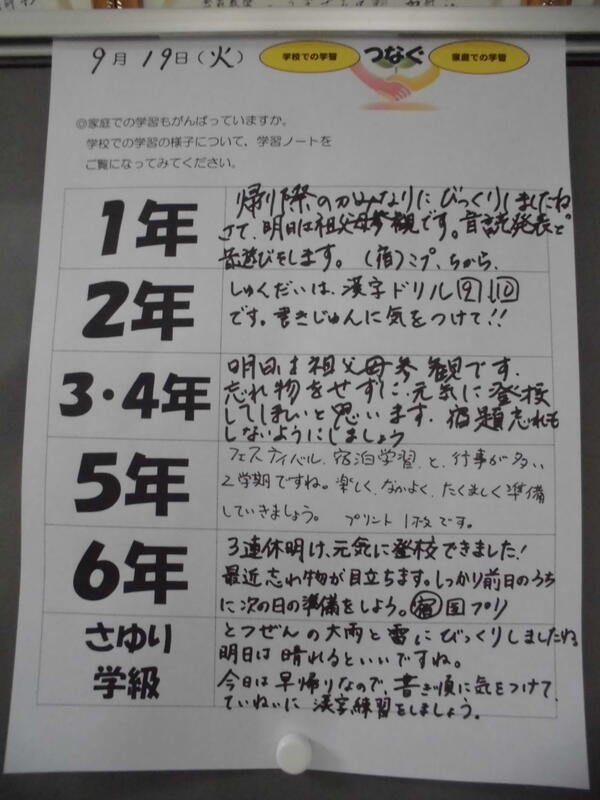 9月19日(火)
学校での学習
つなぐ
家庭での学習
◎家庭での学習もがんばっていますか。
学校での学習の様子について、学習ノートを
ご覧になってみてください。
1年
帰り際のかみなりにびっくりしましたね
さて、明日は祖父母参観です。音読発表と
昔遊びをします。(宿)こプ、ちから、
2年
しゅくだいは、漢字ドリル9、10
です。書きじゅんに気をつけて!!
3・4年
明日は祖父母参観です。
忘れ物をせずに、元気に登校
してほしいと思います。宿題忘れも
しないようにしましょう
5年
フェスティバル、宿泊学習、と、行事が多い
2学期ですね。楽しく、なかよく、たくましく準備
していきましょう。 プリント1枚です。
6年
3連休明け、元気に登校できました!
最近忘れ物が目立ちます。しっかり前日のうち
に次の日の準備をしよう。宿国プリ
さゆり
学級
とつぜんの大雨と雷にびっくりしましたね。
明日は晴れるといいですね。
今日は早帰りなので、書き順に気をつけて、
ていねいに漢字練習をしましょう。